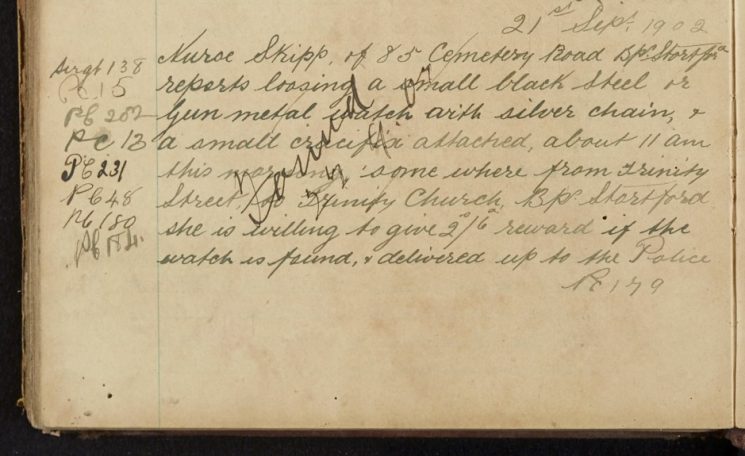 21st Sept. 1902
Sergt 138
PC 15
PC 282
PC 13
PC 231
PC 48
PC 180
PC 184.
Nurse Skipp, of 85 Cemetery Road Bp. Stortford
reports loosing a small black steel or
Gun metal watch with silver chain, &
a small crucifix attached, about 11 am
this morning, some where from Trinity
Street, to Trinity Church, Bp Stortford
she is willing to give 2s/6d reward if the
watch is found, & delivered up to the Police
PC 179
Found